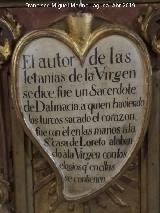 Francisco Miguel Merino Laguna, Abr-2019
El autor de las
letanias de la Virgen
se dice fue un Sacerdote
de Dalmacia a quien haviendo
los turcos sacado el corazon,
fue con él en las manos à la
Sta. casa de Loreto alaban
do à la Virgen con los
elogios qe. en ellas
se contienen